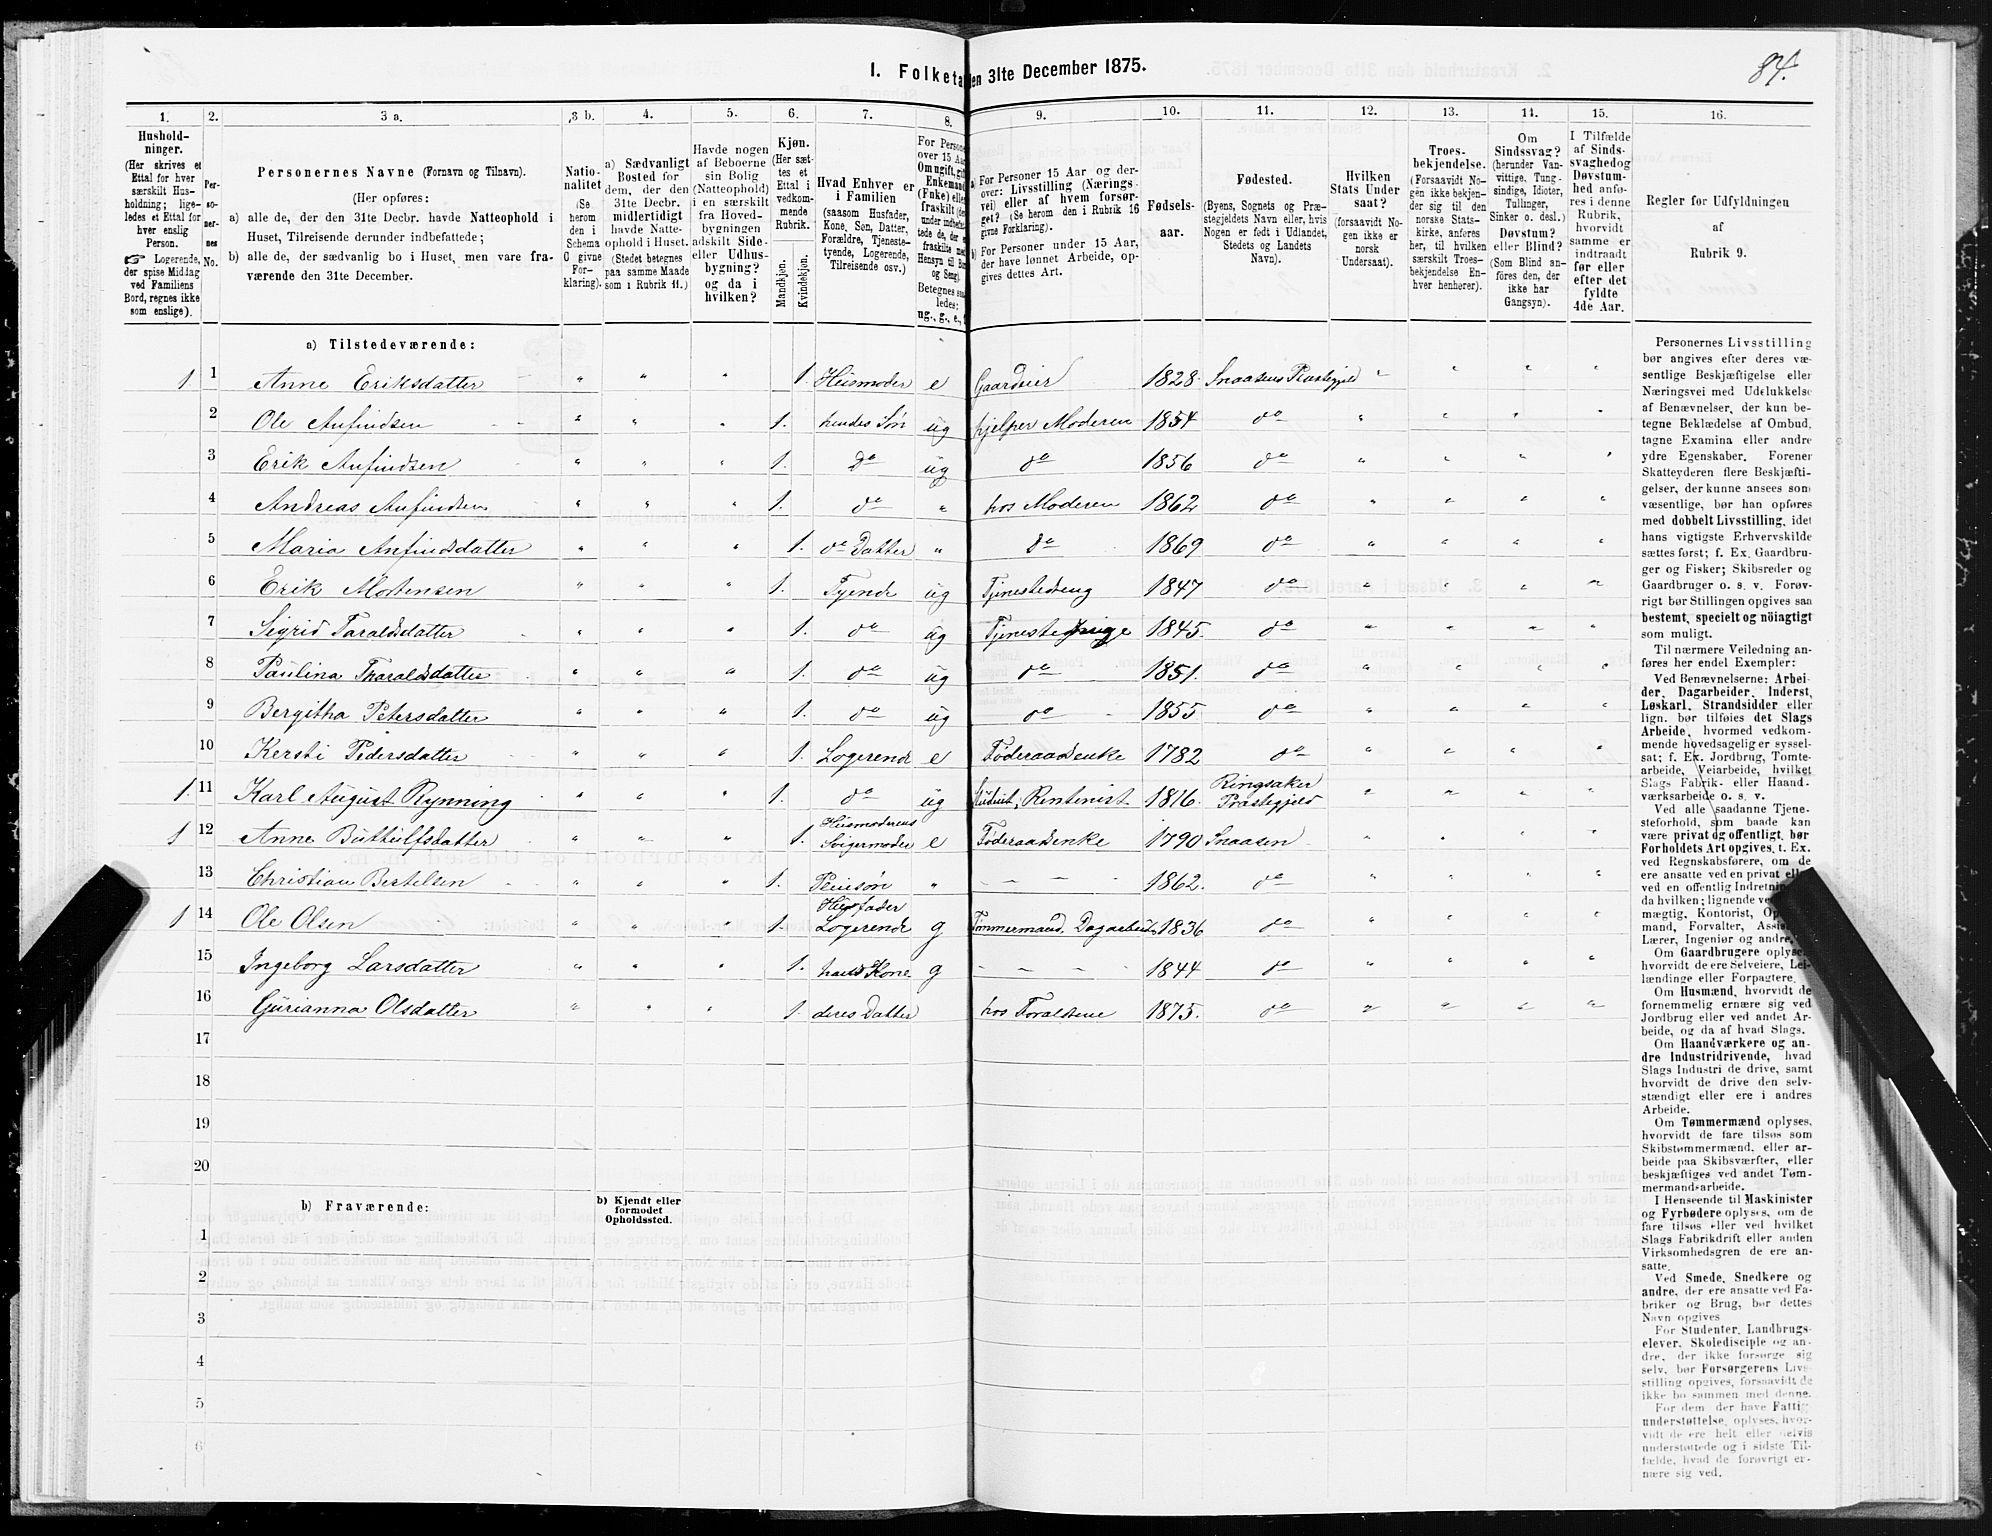 84.
I. Folketa
en 31te December 1875.
1.
2.
3 a.
3 b.
4.
5.
6.
7.
8.
9.
10.
11.
12.
13.
14.
15.
16.
Hushold-
ninger.
(Her skrives et
Ettal for hver
særskilt Hus-
holdning; lige-
ledes et Ettal for
hver enslig
Person.
☞ Logerende,
der spise Middag
ved Familiens
Bord, regnes ikke
som enslige).
Per-
so-
ner-
nes
No.
Personernes Navne (Fornavn og Tilnavn).
(Her opføres:
a) alle de, der den 31te Decbr. havde Natteophold i
Huset, Tilreisende derunder indbefattede;
b) alle de, der sædvanlig bo i Huset, men vare fra-
værende den 31te December.
Natio-
nalitet
(Se
herom
den i
Schema
C givne
For-
klaring).
a) Sædvanligt
Bosted for
dem, der den
31te Decbr.
midlertidigt
havde Natte-
ophold i Huset.
(Stedet betegnes
paa samme Maade
som i Rubrik 11.)
Havde nogen
af Beboerne
sin Bolig
(Natteophold)
i en særskilt
fra Hoved-
bygningen
adskilt Side-
eller Udhus-
bygning?
og da i
hvilken?
Kjøn.
(Her sæt-
tes et
Ettal i
vedkom-
mende
Rubrik.
Mandkjøn.
Kvindekjøn.
Hvad Enhver er
i Familien
(saasom Husfader,
Kone, Søn, Datter,
Forældre, Tjeneste-
tyende, Logerende,
Tilreisende osv.)
For Person
over 15 Aa
Om ugift, gift
Enkemand
(Fuke) eller
fraskilt (der
under indbefat-
tede de, der e
fraskilte med
Hensyn til Bo
og Seng).
Betegnes saa
ledes:
ug., g., e.,
a) For Personer 15 Aar og der-
over: Livsstilling (Nærings-
vei) eller af hvem forsør-
get? (Se herom den i Rubrik 16
givne Forklaring).
b) For Personer under 15 Aar,
der have lønnet Arbeide, op-
gives dettes Art.
Fødsels-
aar.
Fødested.
(Byens, Sognets og Præ-
stegjeldets Navn eller, hvis
Nogen er født i Udlandet,
Stedets og Landets
Navn).
Hvilken
Stats Under
saat?
(forsaavidt No-
gen ikke er
norsk
Undersaat).
Troes-
bekjendelse.
(Forsaavidt No-
gen ikke bekjen-
der sig til den
norske Stats-
kirke, anføres
her, til hvilken
særskilt Troes-
bekjendelse En-
hver henhører).
Om
Sindssvag?
(herunder Van-
vittige, Tung-
sindige, Idioter,
Tullinger,
Sinker o. desl.)
Døvstum?
eller Blind?
(Som Blind an-
føres den, der
ikke har
Gangsyn).
I Tilfælde
af Sinds-
svaghedog
Døvstum-
hed anfø-
res i denne
Rubrik,
hvorvidt
samme er
indtraadt
før eller
efter det
fyldte
4de Aar.
Regler for Udfyldningen
af
Rubrik 9.
a) Tilstedeværende:
1 1 Anne Eriksdatter " " " 1. Husmoder e Gaardeier 1828. Snaasens Præstegjeld " " " "
2 Ole Anfindsen " " " 1. hendes Søn ug hjelper Moderen 1854 do " " " "
3 Erik Anfindsen " " " 1. do ug do 1856 do " " " "
4 Andreas Anfindsen " " " 1. do " hos Moderen 1862 do " " " "
5 Maria Anfindsdatter " " " 1. do Datter " do 1869 do " " " "
6 Erik Mortensen " " " 1. Tyende ug Tjenestedreng 1847 do " " " "
7 Sigrid Taraldsdatter " " " 1. do ug Tjenestepige 1845. do " " " "
8 Paulina Tharaldsdatter " " " 1. do ug do 1851. do " " " "
9 Bergitha Petersdatter " " " 1. do ug do 1855 do " " " "
10 Kersti Pedersdatter " " " 1. Logerende e Føderaadsenke 1782 do " " " "
1. 11 Karl August Rynning " " " 1. do ug Student, Rentenist 1816. Ringsaker Præstegjeld " " " "
1 12 Anne Buthulfsdatter " " " 1. Husmoderens Svigermoder e Føderaadsenke 1790 Snaasen " " " "
13 Christian Bertelsen " " " 1. Pleiesøn " – – – 1862. do " " " "
1 14 Ole Olsen " " " 1. Husfader Logerende g Tømmermand, Dagarbeid. 1836 do " " " "
15 Ingeborg Larsdatter " " " 1. hans Kone g – – – 1844 do " " " "
16 Gurianna Olsdatter " " " 1. deres Datter hos Forældrene 1875. do " " " "
17
18
19
20
b) Fraværende:
b) Kjendt eller
formodet
Opholdssted.
1
2
3
4
5
6
Personernes Livsstilling
bør angives efter deres væ-
sentlige Beskjæftigelse eller
Næringsvei med Udelukkelse
af Benævnelser, der kun be-
tegne Beklædelse af Ombud,
tagne Examina eller andre
ydre Egenskaber. Forener
Skatteyderen flere Beskjæfti-
gelser, der kunne ansees som
væsentlige, bør han opføres
med dobbelt Livsstilling, idet
hans vigtigste Erhvervskilde
sættes først; f. Ex. Gaardbru-
ger og Fisker; Skibsreder og
Gaardbruger o. s. v. Forøv-
rigt bør Stillingen opgives saa
bestemt, specielt og nöiagtigt
som muligt.
Til nærmere Veiledning an-
føres her endel Exempler:
Ved Benævnelserne: Arbei-
der, Dagarbeider, Inderst,
Løskarl, Strandsidder eller
lign. bør tilføies det Slags
Arbeide, hvormed vedkom-
mende hovedsagelig er syssel-
sat; f. Ex. Jordbrug, Tomte-
arbeide, Veiarbeide, hvilket
Slags Fabrik- eller Haand-
værksarbeide o. s. v.
Ved alle saadanne Tjene-
steforhold, som baade kan
være privat og offentligt, bør
Forholdets Art opgives, t. Ex.
ved Regnskabsførere, om de
ere ansatte ved en privat eller
ved en offentlig Indretning
da hvilken; lignende ve
mægtig, Kontorist, Op
mand, Forvalter, Assis
Lærer, Ingeniør og andre.
Om Gaardbrugere oplyses
hvorvidt de ere Selveiere, Lei-
lændinge eller Forpagtere.
Om Husmænd, hvorvidt de
fornemmelig ernære sig ved
Jordbrug eller ved andet Ar-
beide, og da af hvad Slags.
Om Haandværkere og an-
dre Industridrivende, hvad
Slags Industri de drive, samt
hvorvidt de drive den selv-
stændigt eller ere i andres
Arbeide.
Om Tømmermænd oplyses,
hvorvidt de fare tilsøs som
Skibstømmermænd, eller ar-
beide paa Skibsværfter, eller
beskjæftiges ved andet Tøm-
mermandsarbeide.
I Henseende til Maskinister
og Fyrbødere oplyses, om de
fare tilsøs eller ved hvilket
Slags Fabrikdrift eller anden
Virksomhedsgren de ere an-
satte.
Ved Smede, Snedkere og
andre, der ere ansatte ved Fa-
briker og Brug, bør dettes
Navn opgives
For Studenter, Landbrugs-
elever, Skoledisciple og an-
dre, der ikke forsørge sig
selv, bør Forsørgerens Livs-
stilling opgives, forsaavidt de
ikke bo sammen med denne.
For dem der have Fattig-
understøttelse, oplyses, hvor-
vidt de ere helt eller delvis
understøttede og i sidste Til-
fælde, hvad de forøvrigt er-
nære sig ved.